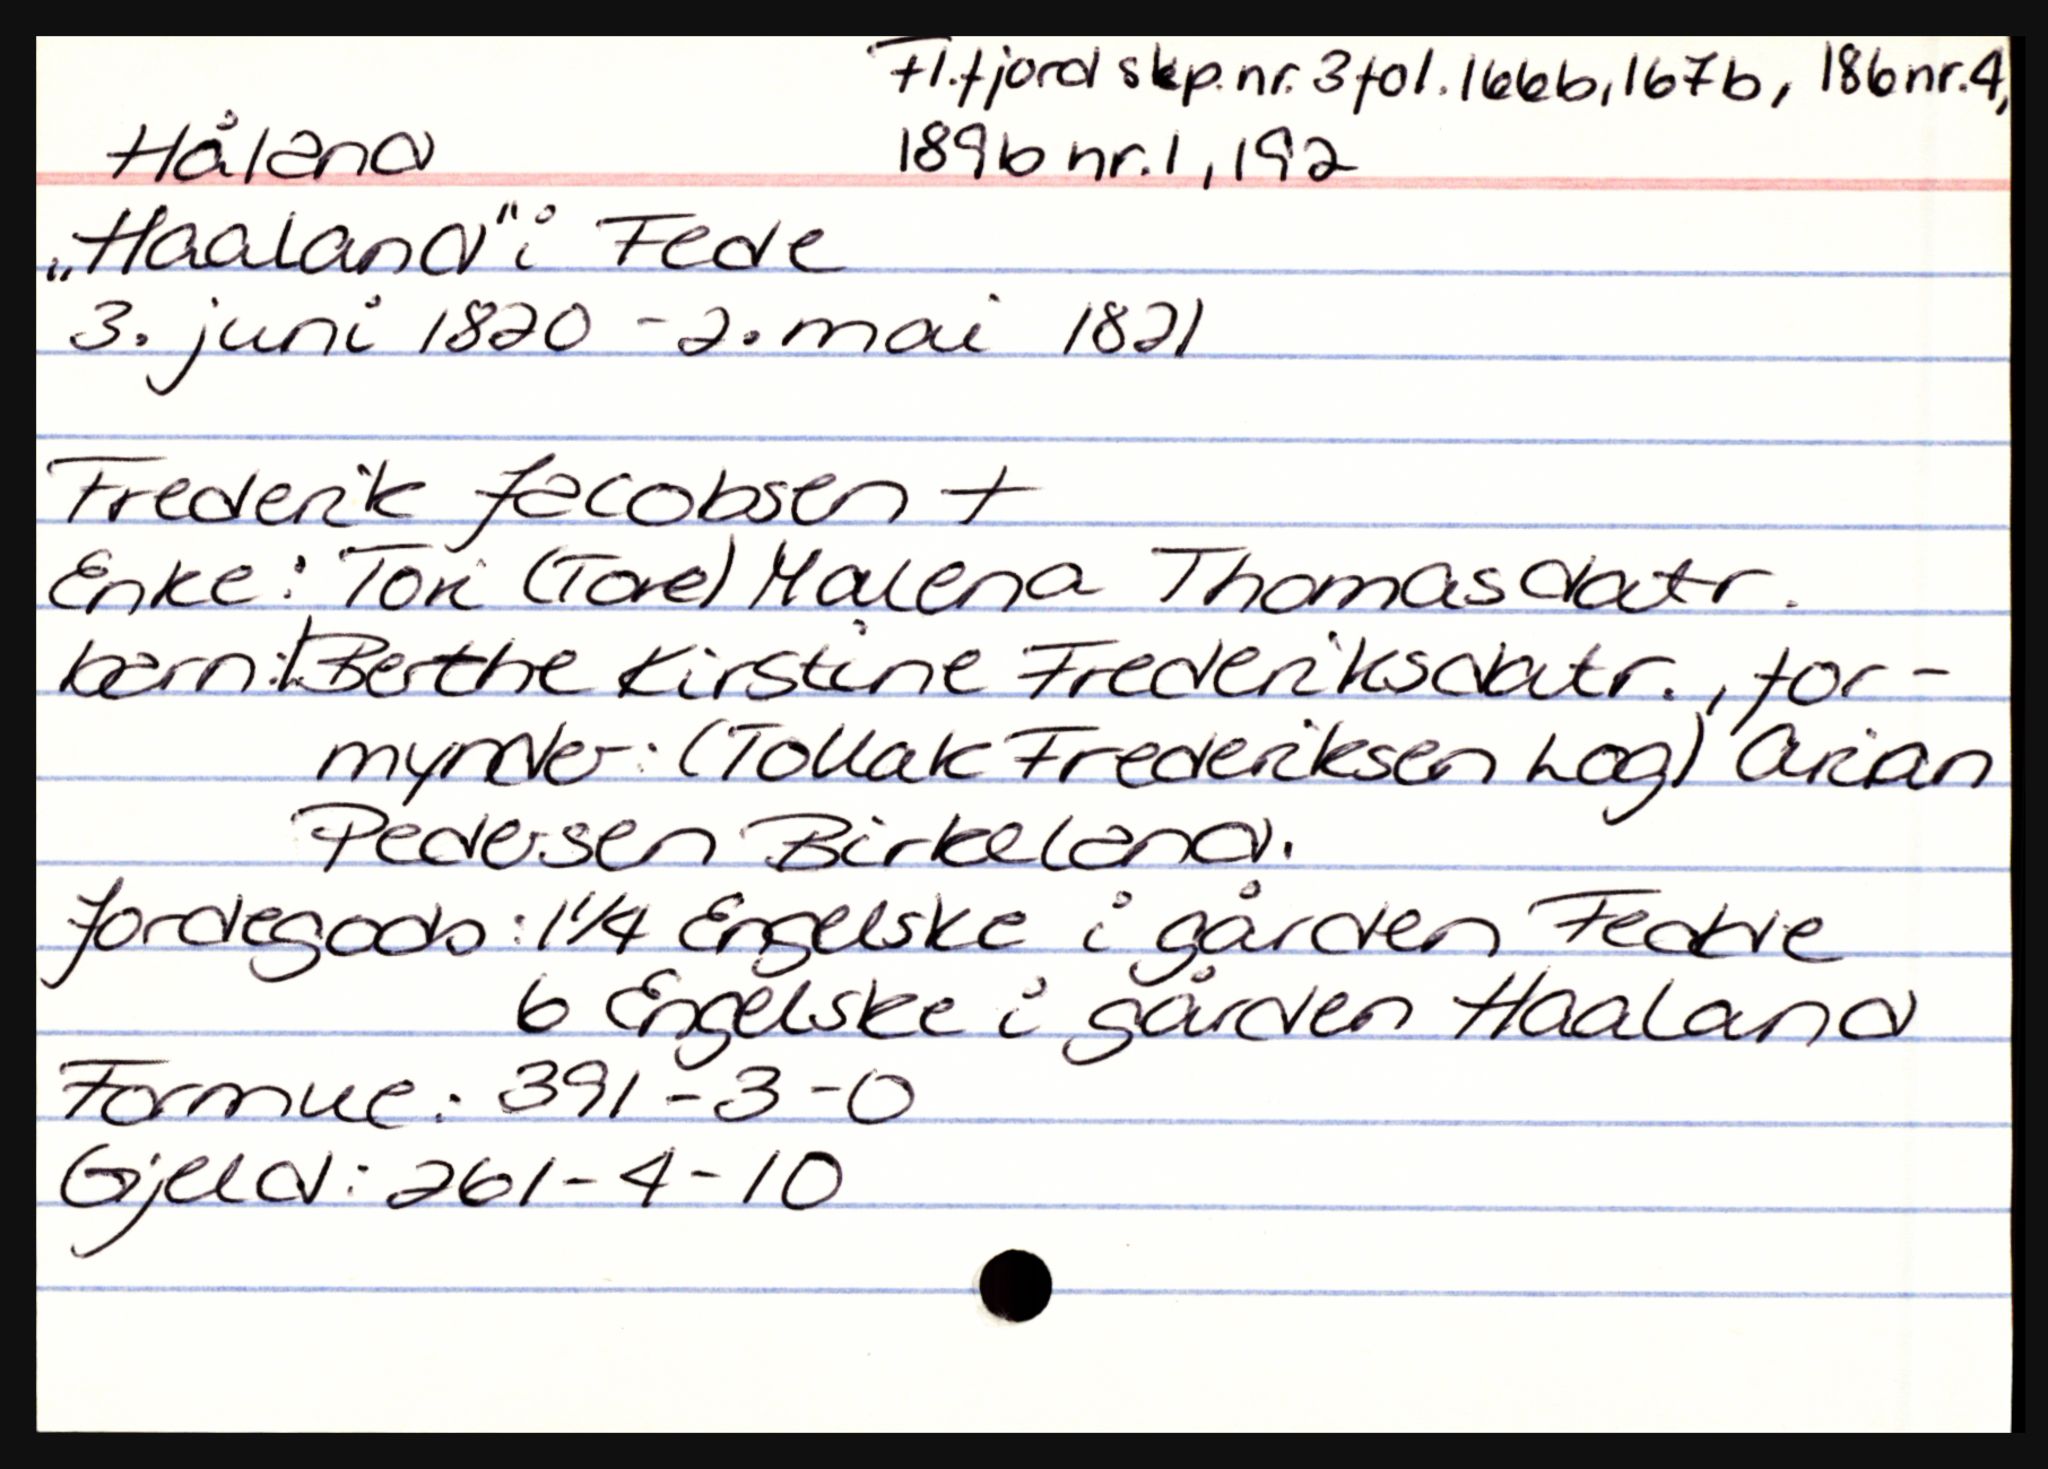 Fl.fjord skp.nr. 3 fol. 166b, 167b, 186 nr. 4,
Håland 189b nr. 1, 192
„Haaland" i Fede
3. juni 1820 - 2. mai 1821
Frederik Jacobsen +
Enke: Tori (Tore) Malena Thomasdatr.
barn: Berthe Kirstine Frederiksdatr., for-
mynder: (Tollak Frederiksen Log) Arian
Pedersen Birkeland.
Jordegods: 1 1/4 Engelske i gården Fedde
6 Engelske i gården Haaland
Formue: 391-3-0
Gjeld: 261-4-10